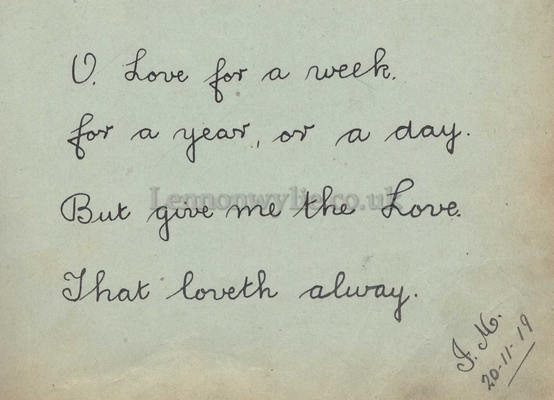 O. Love for a week.
for a year, or a day.
But give me the Love.
That loveth alway.
Lennonwylie.co.uk
J. M.
20-11-19